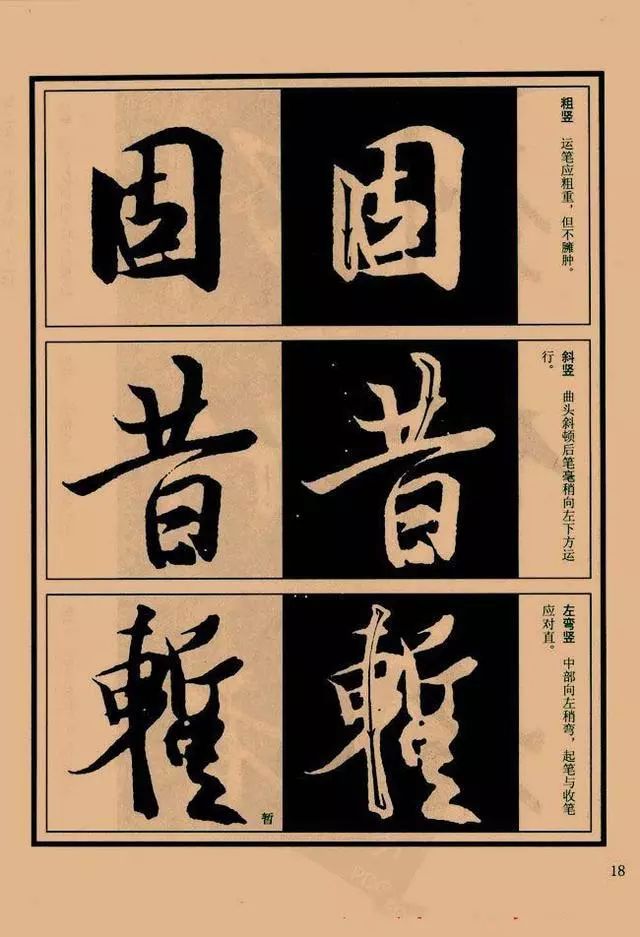 固
固
粗竖 运笔应粗重，但不臃肿。
昔
昔
斜竖 曲头斜顿后笔毫稍向左下方运
行。
暂
左弯竖 中部向左稍弯，起笔与收笔
应对直。
18